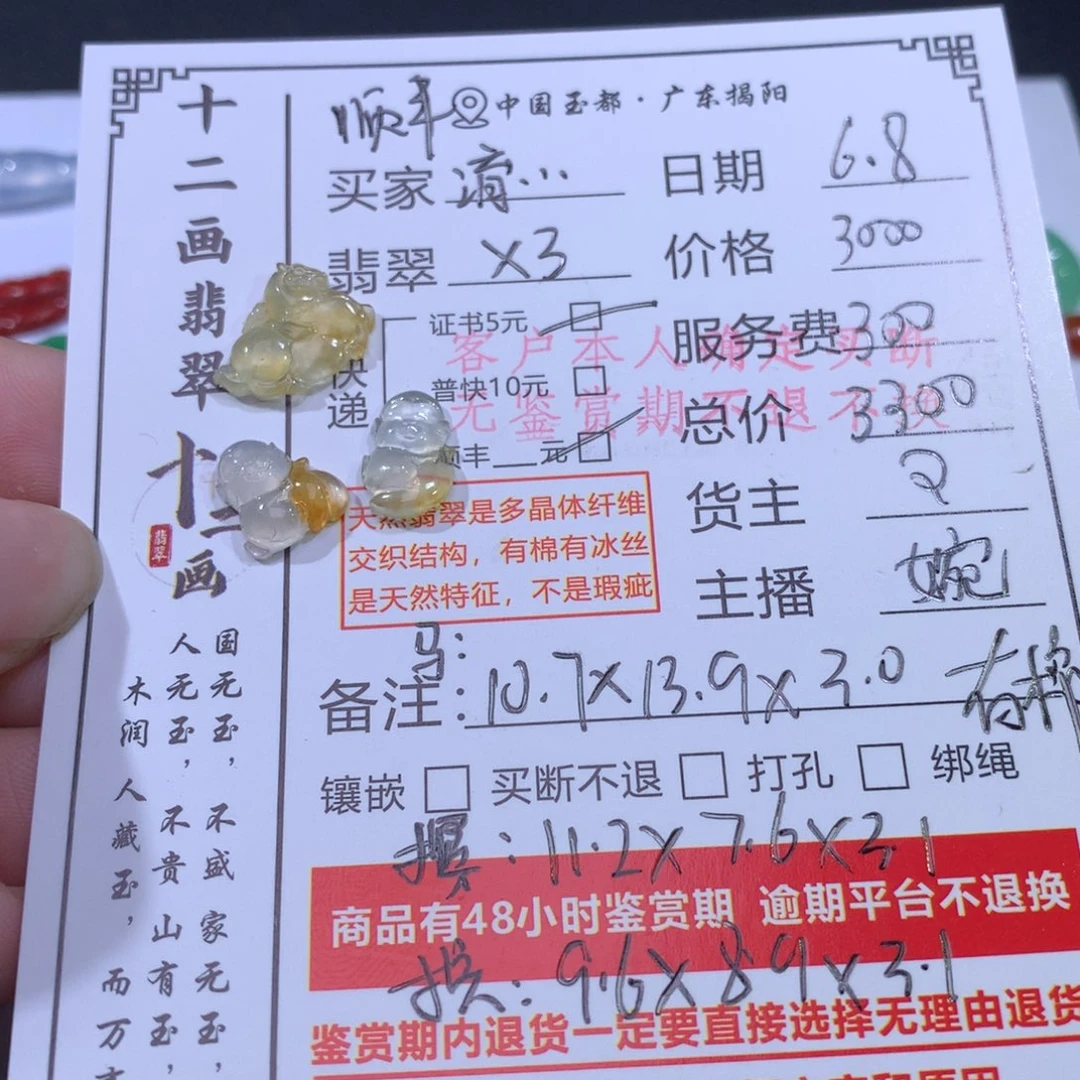 十二画翡翠
十二画
翡翠
国无玉，不盛家无玉，
人无玉，不贵山有玉，
木润人藏玉，而万
顺丰 中国玉都·广东揭阳
买家 日期 6.8
翡翠 x3 价格 3000
证书5元 服务费 300
客户本人确定买断
快递 普快10元
无鉴赏期不退不换
顺丰__元 总价 3300
货主 2
天然翡翠是多晶体纤维
交织结构，有棉有冰丝
是天然特征，不是瑕疵
主播 婉
马：
备注：10.7x13.9x3.0 有棉
镶嵌 买断不退 打孔 绑绳
：11.2x7.6x3.1
商品有48小时鉴赏期 逾期平台不退换
：9.6x8.9x3.1
鉴赏期内退货一定要直接选择无理由退货